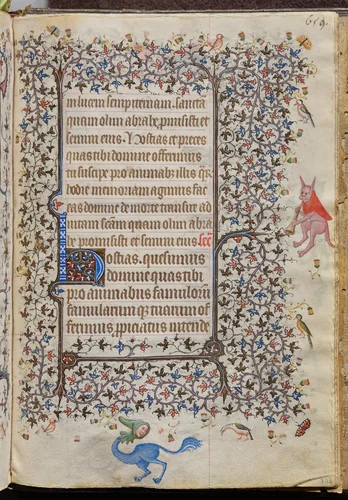 659.
in lucem sempiternam. sancta
quam olim abrahe promisisti et
semini eius. Hostias et preces
quas tibi domine offerimus
tu suscipe pro animabus illis qr
hodie memoriam agimus fac
eas domine de morte transire ad
uitam scam quam olim abra
he promisisti et semini eius sec
Hostias. quesumus
domine quas tibi
pro animabus famulorum
famularum qr tuarum of
ferimus ppiciatus intende